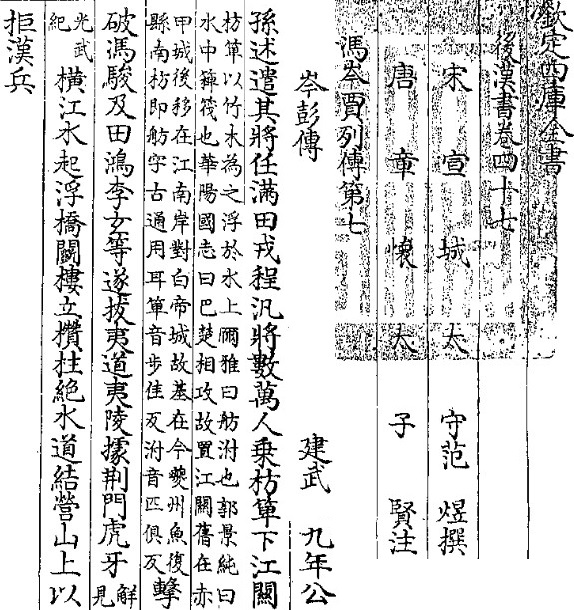 欽定四庫全書
後漢書卷四十七
宋宣城太守范煜撰
唐章懷太子賢注
馮岑賈列傳第七
岑彭傳 建武 九年公
孫述遣其將任滿田戎程汎將數萬人乗枋箄下江關
枋箄以竹木為之浮於水上爾雅曰舫泭也郭景純曰
水中簰筏也華陽國志曰巴楚相攻故置江關舊在赤
甲城後移在江南岸對白帝城故基在今夔州魚復
縣南枋即舫字古通用耳箄音步佳反泭音匹俱反 擊
破馮駿及田鴻李玄等遂拔夷道夷陵據荆門虎牙 解見
光武紀 橫江水起浮橋鬭樓立欑柱絶水道結營山上以
拒漢兵